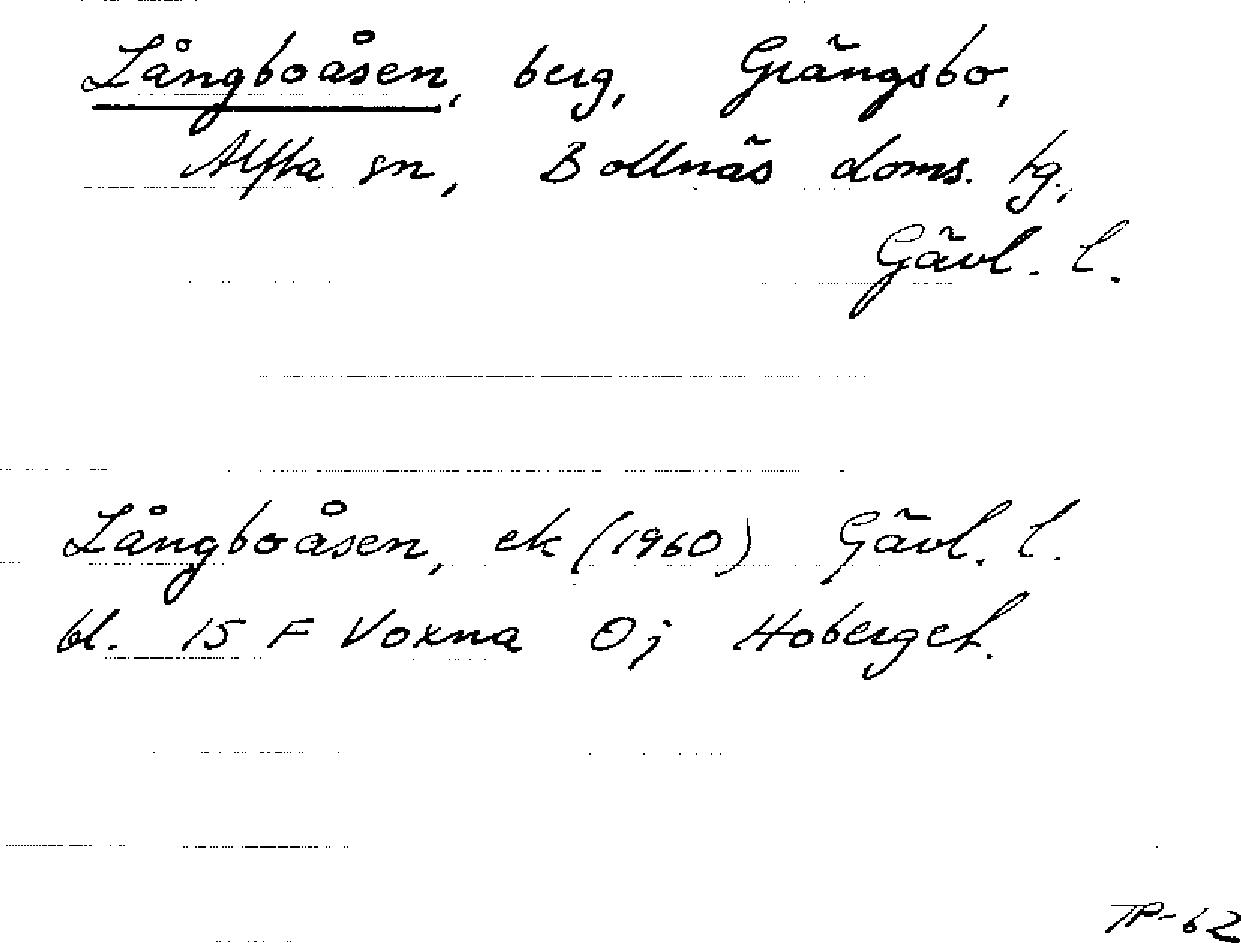 Långboåsen, berg, Grängsbo,
Alfta sn, Bollnäs doms. tg,
Gävl. l.
Långboåsen, ek (1960) Gävl. l.
bl. 15 F Voxna Oj Hoberget.
TP-62